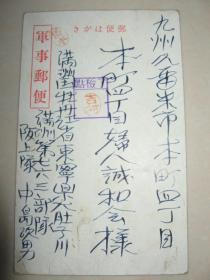 郵便はがき
九州久留米市本町四丁目
本町四丁目婦人誠和会様
軍事郵便
検閲
満洲国牡丹江省東寧県大肚子川
満洲第七六三部隊
防上隊
中島次男